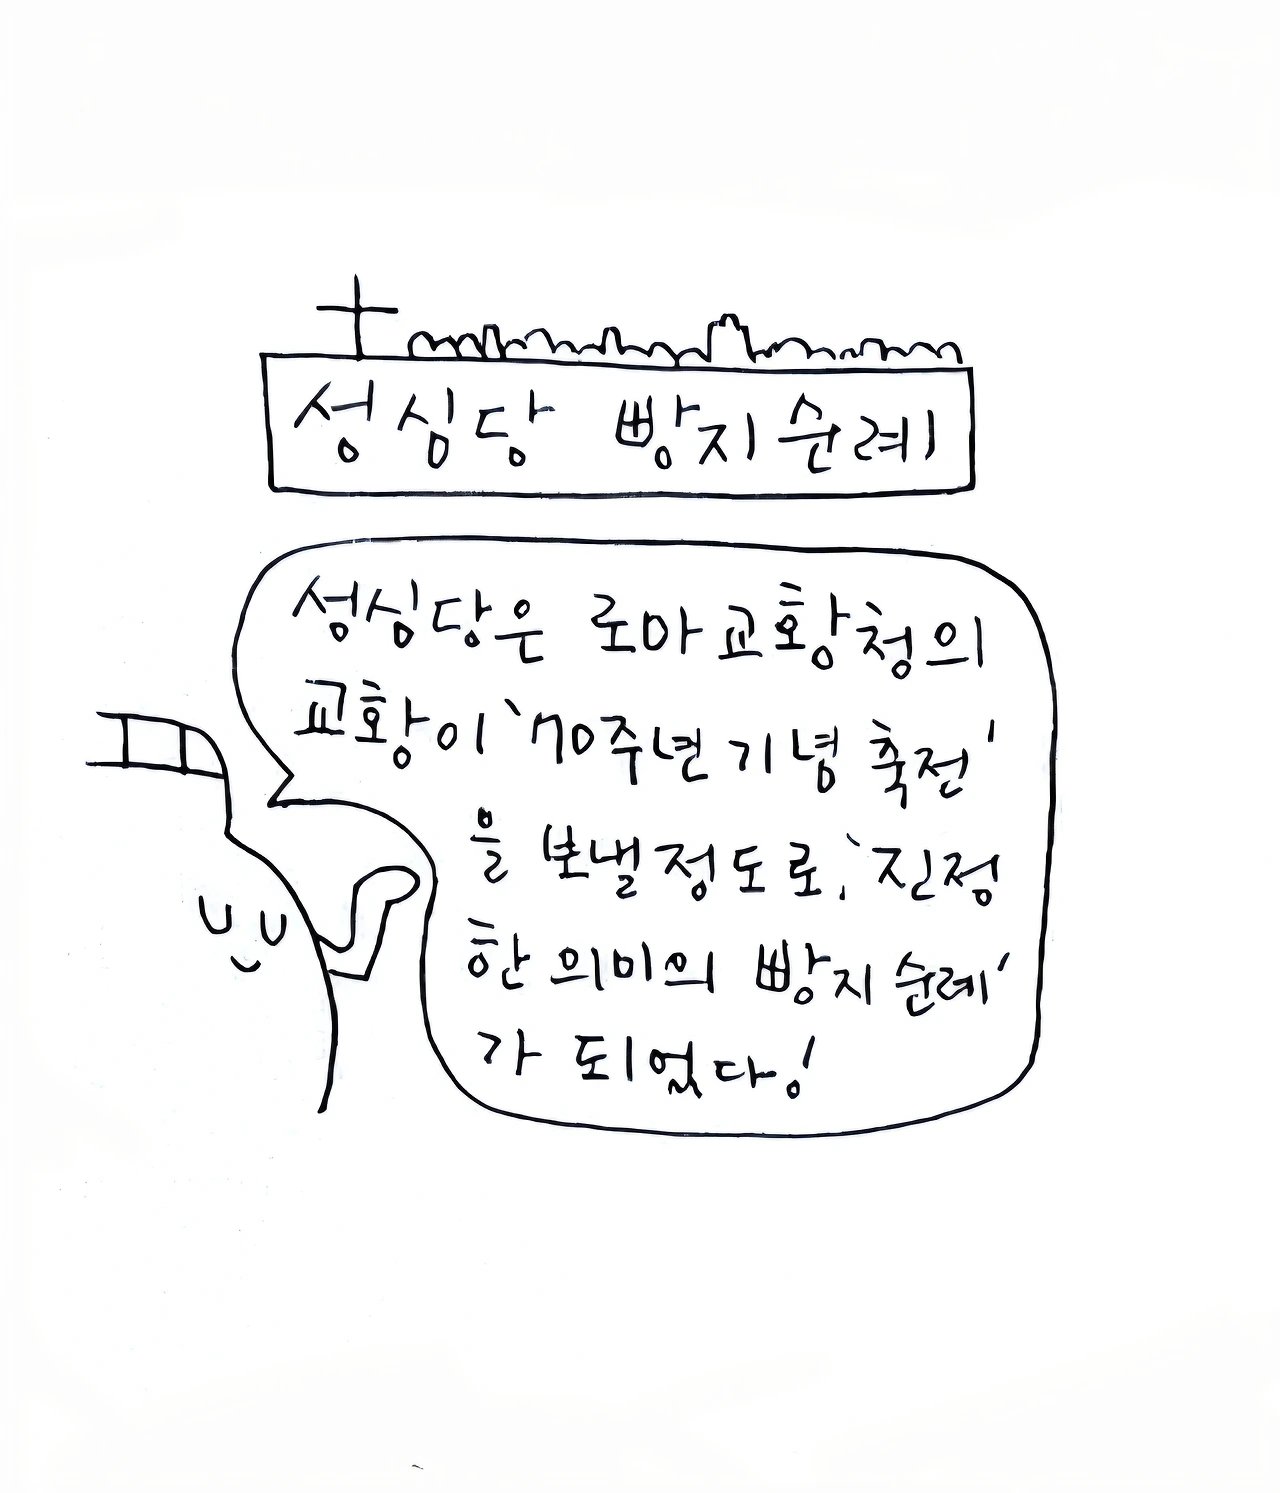 성심당 빵지순례
성심당은 로마교황청의
교황이 '70주년 기념 축전'
을 보낼정도로, '진정
한 의미의 빵지순례'
가 되었다!